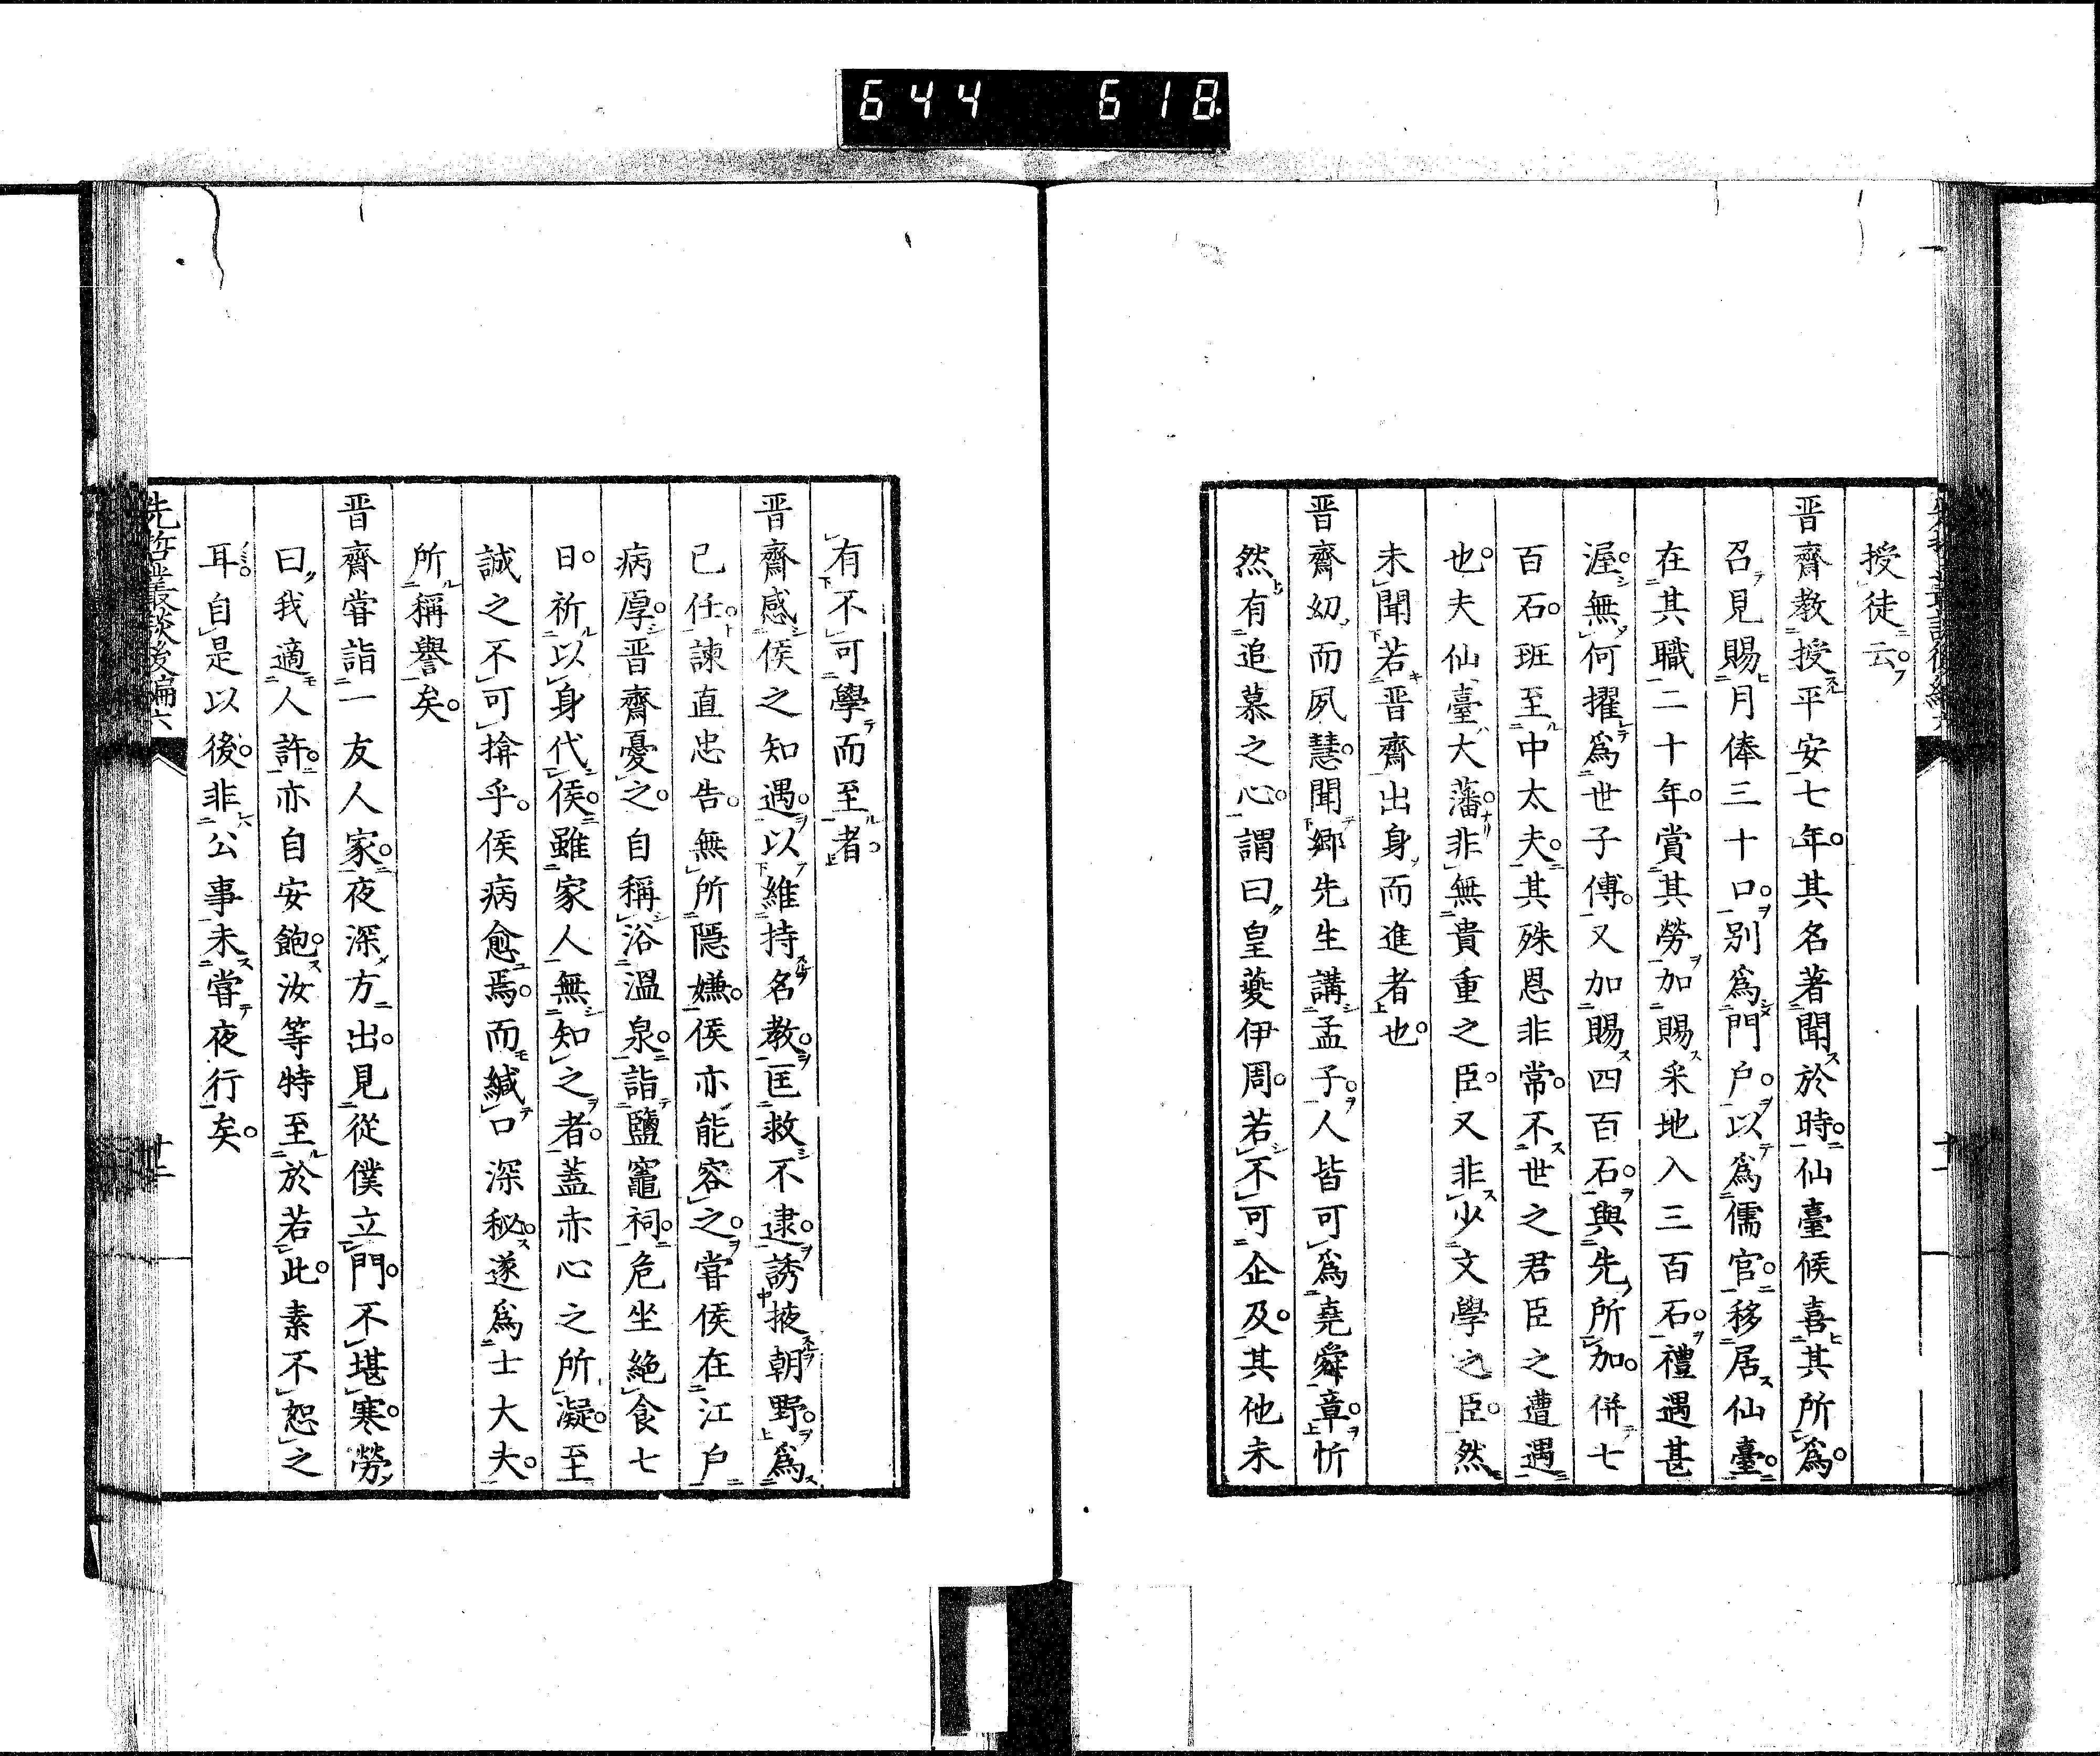 644 618
授徒云。
晋齋教授平安七年。其名著聞於時。仙臺候喜其所爲。
召見賜月俸三十口。別爲門戶。以爲儒官。移居仙臺。
在其職二十年。賞其勞加賜釆地入三百石。禮遇甚
渥。無何擢爲世子傅。又加賜四百石。與先所加。併七
百石。班至中太夫。其殊恩非常。不世之君臣之遭遇
也。夫仙臺大藩。非無貴重之臣。又非少文學之臣。然
未聞若晋齋出身而進者也。
晋齋幼而夙慧。聞鄉先生講孟子。人皆可爲堯舜章。忻
然有追慕之心。謂曰皇夔伊周。若不可企及。其他未
有不可學而至者。
晋齋感侯之知遇。以維持名教。匡救不逮。誘掖朝野。爲
己任。諫直忠告。無所隱嫌。侯亦能容之。嘗侯在江戶
病厚。晋齋憂之。自稱浴溫泉。詣鹽竈祠。危坐絶食七
日。祈以身代侯。雖家人無知之者。蓋赤心之所凝。至
誠之不可揜乎。侯病愈焉。而緘口深秘。遂爲士大夫。
所稱譽矣。
晋齋嘗詣一友人家。夜深方出。見從僕立門。不堪寒勞
曰我適人許。亦自安飽。汝等特至於若此。素不恕之
耳。自是以後。非公事未嘗夜行矣。
先哲叢談後編六
十二